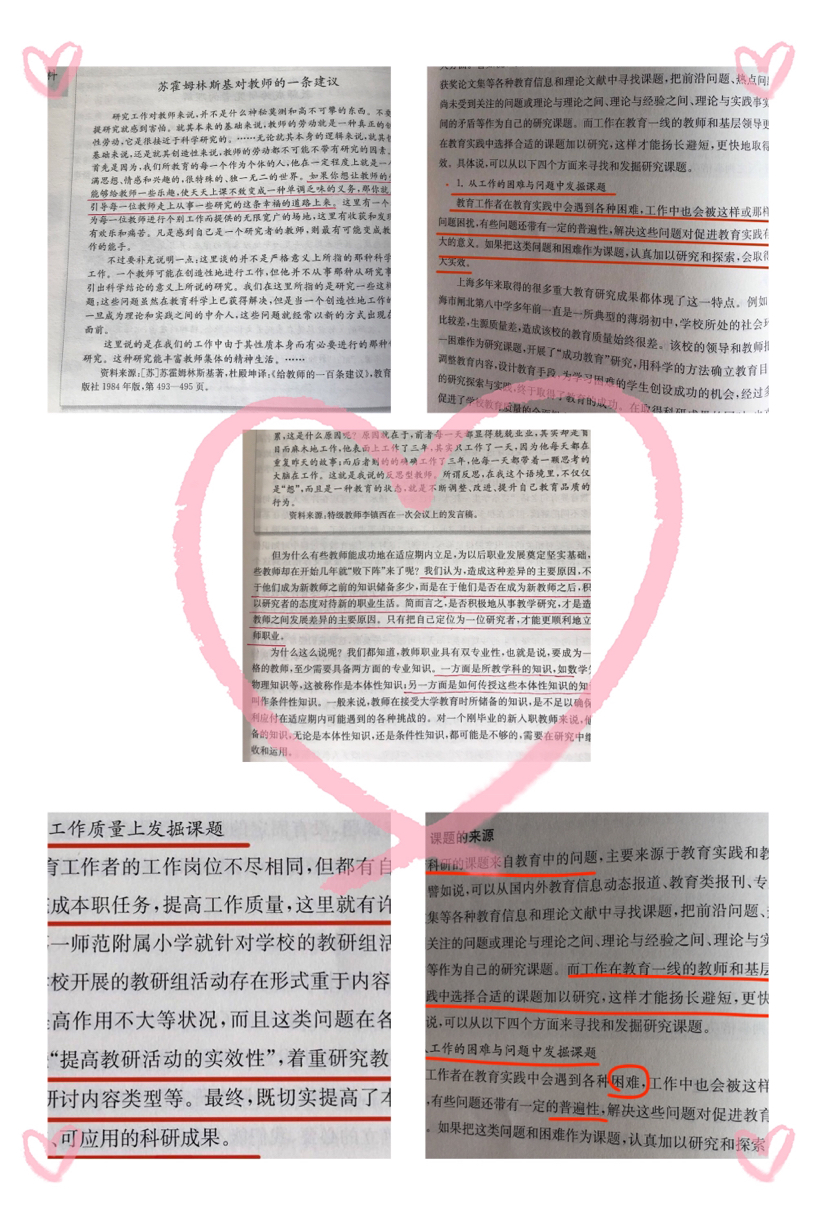 科
苏霍姆林斯基对教师的一条建议
研究工作对教师来说,并不是什么神秘莫测和高不可攀的东西。不要
提研究就感到害怕。就其本来的基础来说,教师的劳动就是一种真正的创
性劳动,它是很接近于科学研究的。……无论就其本身的逻辑来说,就其哲
基础来说,还是就其创造性来说,教师的劳动都不可能不带有研究的因素。
首先是因为,我们所教育的每一个作为个体的人,他在一定程度上就是一个
满思想、情感和兴趣的,很特殊的、独一无二的世界。如果你想让教师的
能够给教师一些乐趣,使天天上课不致变成一种单调乏味的义务,那你就
引导每一位教师走上从事一些研究的这条幸福的道路上来。这里有一个
为每一位教师进行个别工作而提供的无限宽广的场地,这里有收获和发现
有欢乐和痛苦。凡是感到自己是一个研究者的教师,则最有可能变成教
作的能手。
不过要补充说明一点:这里谈的并不是严格意义上所指的那种科学
工作。一个教师可能在创造性地进行工作,但他并不从事那种从研究事
引出科学结论的意义上所说的研究。我们在这里所指的是研究一些这样
题:这些问题虽然在教育科学上已获得解决,但是当一个创造性地工作的
一旦成为理论和实践之间的中介人,这些问题就经常以新的方式出现在
面前。
这里说的是在我们的工作中由于其性质本身而有必要进行的那种
研究。这种研究能丰富教师集体的精神生活。……
资料来源:[苏]苏霍姆林斯基著,杜殿坤译:《给教师的一百条建议》,教育
版社 1984 年版,第 493—495 页。
获奖论文集等各种教育信息和理论文献中寻找课题,把前沿问题、热点问
尚未受到关注的问题或理论与理论之间、理论与经验之间、理论与实践事实
间的矛盾等作为自己的研究课题。而工作在教育一线的教师和基层领导更
在教育实践中选择合适的课题加以研究,这样才能扬长避短,更快地取得
效。具体说,可以从以下四个方面来寻找和发掘研究课题。
1. 从工作的困难与问题中发掘课题
教育工作者在教育实践中会遇到各种困难,工作中也会被这样或那样
问题困扰,有些问题还带有一定的普遍性,解决这些问题对促进教育实践有
大的意义。如果把这类问题和困难作为课题,认真加以研究和探索,会取得
大实效。
上海多年来取得的很多重大教育研究成果都体现了这一特点。例如
海市闸北第八中学多年前一直是一所典型的薄弱初中,学校所处的社会环
比较差,生源质量差,造成该校的教育质量始终很差。该校的领导和教师把
一困难作为研究课题,开展了“成功教育”研究,用科学的方法确立教育目
调整教育内容,设计教育手段,为学习困难的学生创设成功的机会,经过多
的研究探索与实践,终于取得了教育的成功。在取得科研成果的同时,也
促进了学校教育质量的全面
累,这是什么原因呢?原因就在于,前者每一天都显得兢兢业业,其实却是盲
目而麻木地工作,他表面上工作了三年,其实只工作了一天,因为他每天都在
重复昨天的故事;而后者则的的确确工作了三年,他每一天都带着一颗思考的
大脑在工作。这就是我说的反思型教师。所谓反思,在我这个语境里,不仅仅
是“想”,而且是一种教育的状态,就是不断调整、改进、提升自己教育品质的
行为。
资料来源:特级教师李镇西在一次会议上的发言稿。
但为什么有些教师能成功地在适应期内立足,为以后职业发展奠定坚实基础,
些教师却在开始几年就“败下阵”来了呢?我们认为,造成这种差异的主要原因,不
于他们成为新教师之前的知识储备多少,而是在于他们是否在成为新教师之后,积
以研究者的态度对待新的职业生活。简而言之,是否积极地从事教学研究,才是造
教师之间发展差异的主要原因。只有把自己定位为一位研究者,才能更顺利地立
师职业。
为什么这么说呢?我们都知道,教师职业具有双专业性,也就是说,要成为一
格的教师,至少需要具备两方面的专业知识。一方面是所教学科的知识,如数学
物理知识等,这被称作是本体性知识;另一方面是如何传授这些本体性知识的知
叫作条件性知识。一般来说,教师在接受大学教育时所储备的知识,是不足以确保
利应付在适应期内可能遇到的各种挑战的。对一个刚毕业的新入职教师来说,他
备的知识,无论是本体性知识,还是条件性知识,都可能是不够的,需要在研究中继
收和运用。
工作质量上发掘课题
育工作者的工作岗位不尽相同,但都有自
成本职任务,提高工作质量,这里就有许
一师范附属小学就针对学校的教研组活
校开展的教研组活动存在形式重于内容
高作用不大等状况,而且这类问题在各
“提高教研活动的实效性”,着重研究教
研讨内容类型等。最终,既切实提高了本
、可应用的科研成果。
课题的来源
科研的课题来自教育中的问题,主要来源于教育实践和教
譬如说,可以从国内外教育信息动态报道、教育类报刊、专
集等各种教育信息和理论文献中寻找课题,把前沿问题、
关注的问题或理论与理论之间、理论与经验之间、理论与实
等作为自己的研究课题。而工作在教育一线的教师和基层
践中选择合适的课题加以研究,这样才能扬长避短,更快
说,可以从以下四个方面来寻找和发掘研究课题。
工作的困难与问题中发掘课题
工作者在教育实践中会遇到各种困难,工作中也会被这样
,有些问题还带有一定的普遍性,解决这些问题对促进教育
。如果把这类问题和困难作为课题,认真加以研究和探索